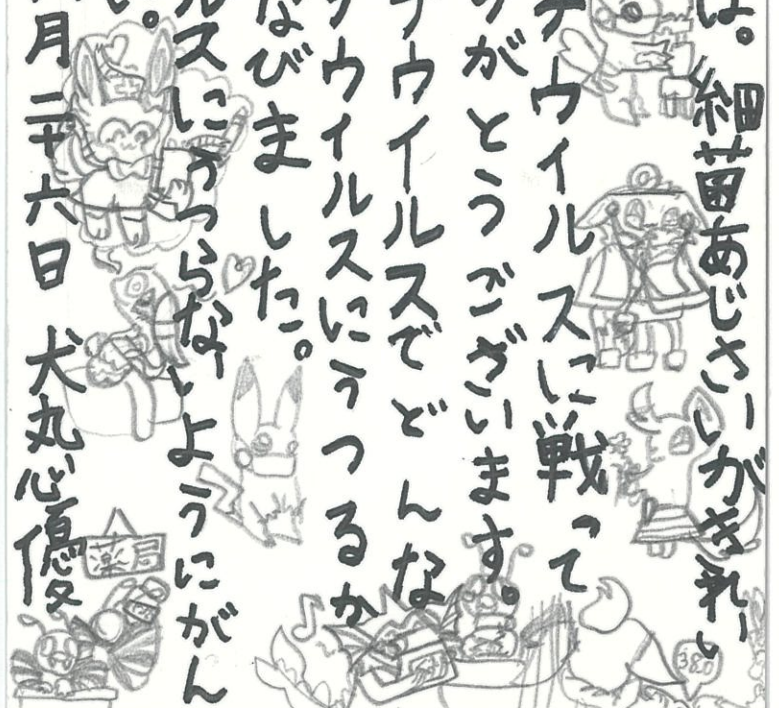 は。細苗あじさいがき乳い
ウイルスに戦って
がとうございます。
ウイルスでどんな
ウイルスにうつるか
なびました。
ルスにうつらないようにがん
い。
月二十六日 犬丸心優
薬局
380